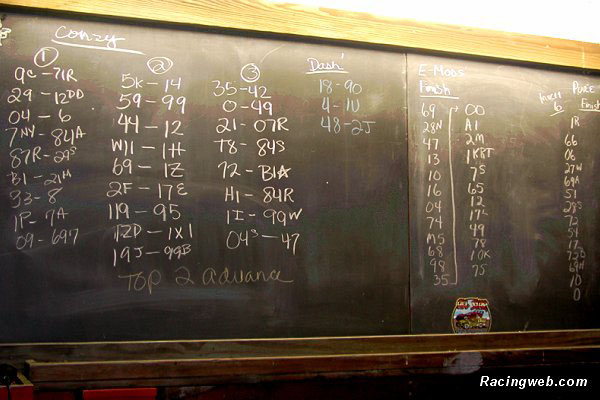 Conzy
1
9c-71R
29-12DD
04-6
7NY-84A
87R-29S
B1-21H
33-8
1P-7A
09-697
2
5K-14
59-99
44-12
W11-1H
69-1Z
2F-17E
119-95
1ZD-1X1
19J-99B
3
35-42
0-49
21-07R
T8-84S
72-B1A
H1-84R
1I-99W
04S-47
TOP 2 advance
Dash'
18-90
4-1U
48-2J
E-Mods
Finish
69
28N
47
13
10
16
04
74
M5
68
98
35
00
A1
2M
1KRT
7S
65
12
17L
49
78
10K
75
6
Pure
Finish
1R
66
06
27W
69A
51
28S
72
54
17
75D
69N
10
0
Racingweb.com